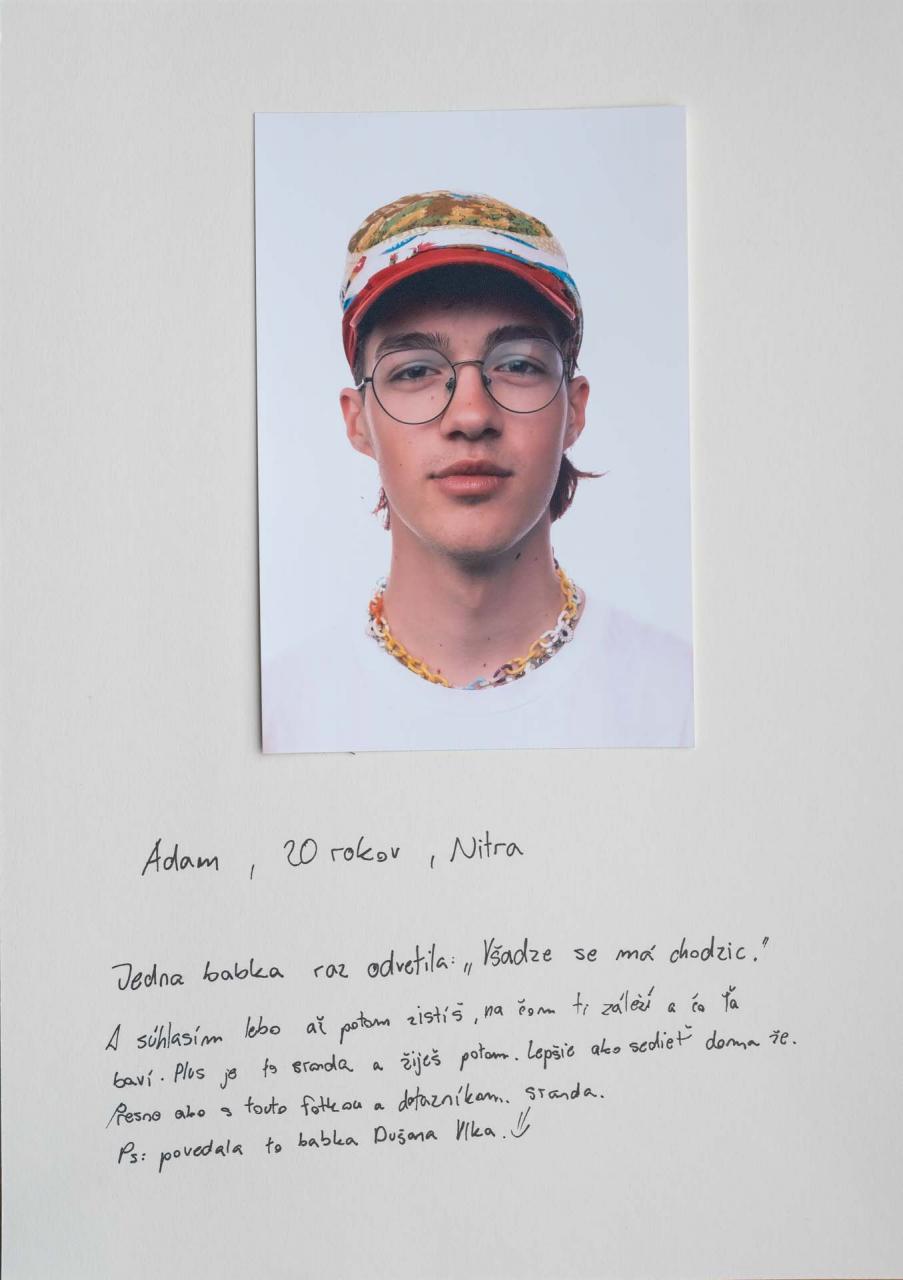 Adam, 20 rokov, Nitra
Jedna babka raz odvetila: „Všadze se má chodzic."
A súhlasím lebo až potom zistíš, na čom ti záleží a čo ťa
baví. Plus je to sranda a žiješ potom. Lepšie ako sedieť doma že.
Presne ako s touto fotkou a dotazníkom. sranda.
Ps: povedala to babka Dušana Vlka.